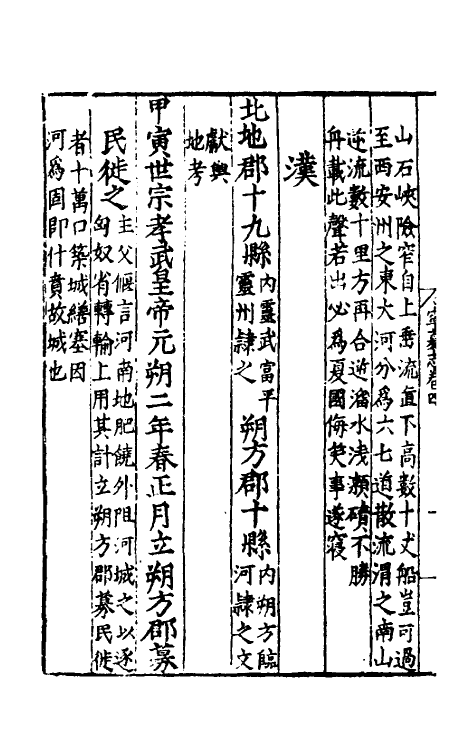 山石峽險窄自上垂流直下高數十丈船豈可過
至西安州之東大河分為六七道散流渭之南山
逆流數十里方再合逆溜水浅灘磧不勝
舟載此聲若出必為夏國侮笑事遂寢
漢
北地郡十九縣內靈武富平靈州隸之 朔方郡十縣內朔方臨河隸之文
獻輿地考
甲寅世宗孝武皇帝元朔二年春正月立朔方郡募
民徙之主父偃言河南地肥饒外阻河城之以逐
匈奴省轉輸上用其計立朔方郡募民徙
者十萬口築城繕塞因
河為固即什賁故城也